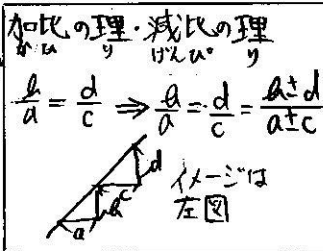 加比の理・減比の理
かひ り げんぴ り
b/a = d/c ⇒ b/a = d/c = b±d/a±c
d
イメージは
c
b
左図
a